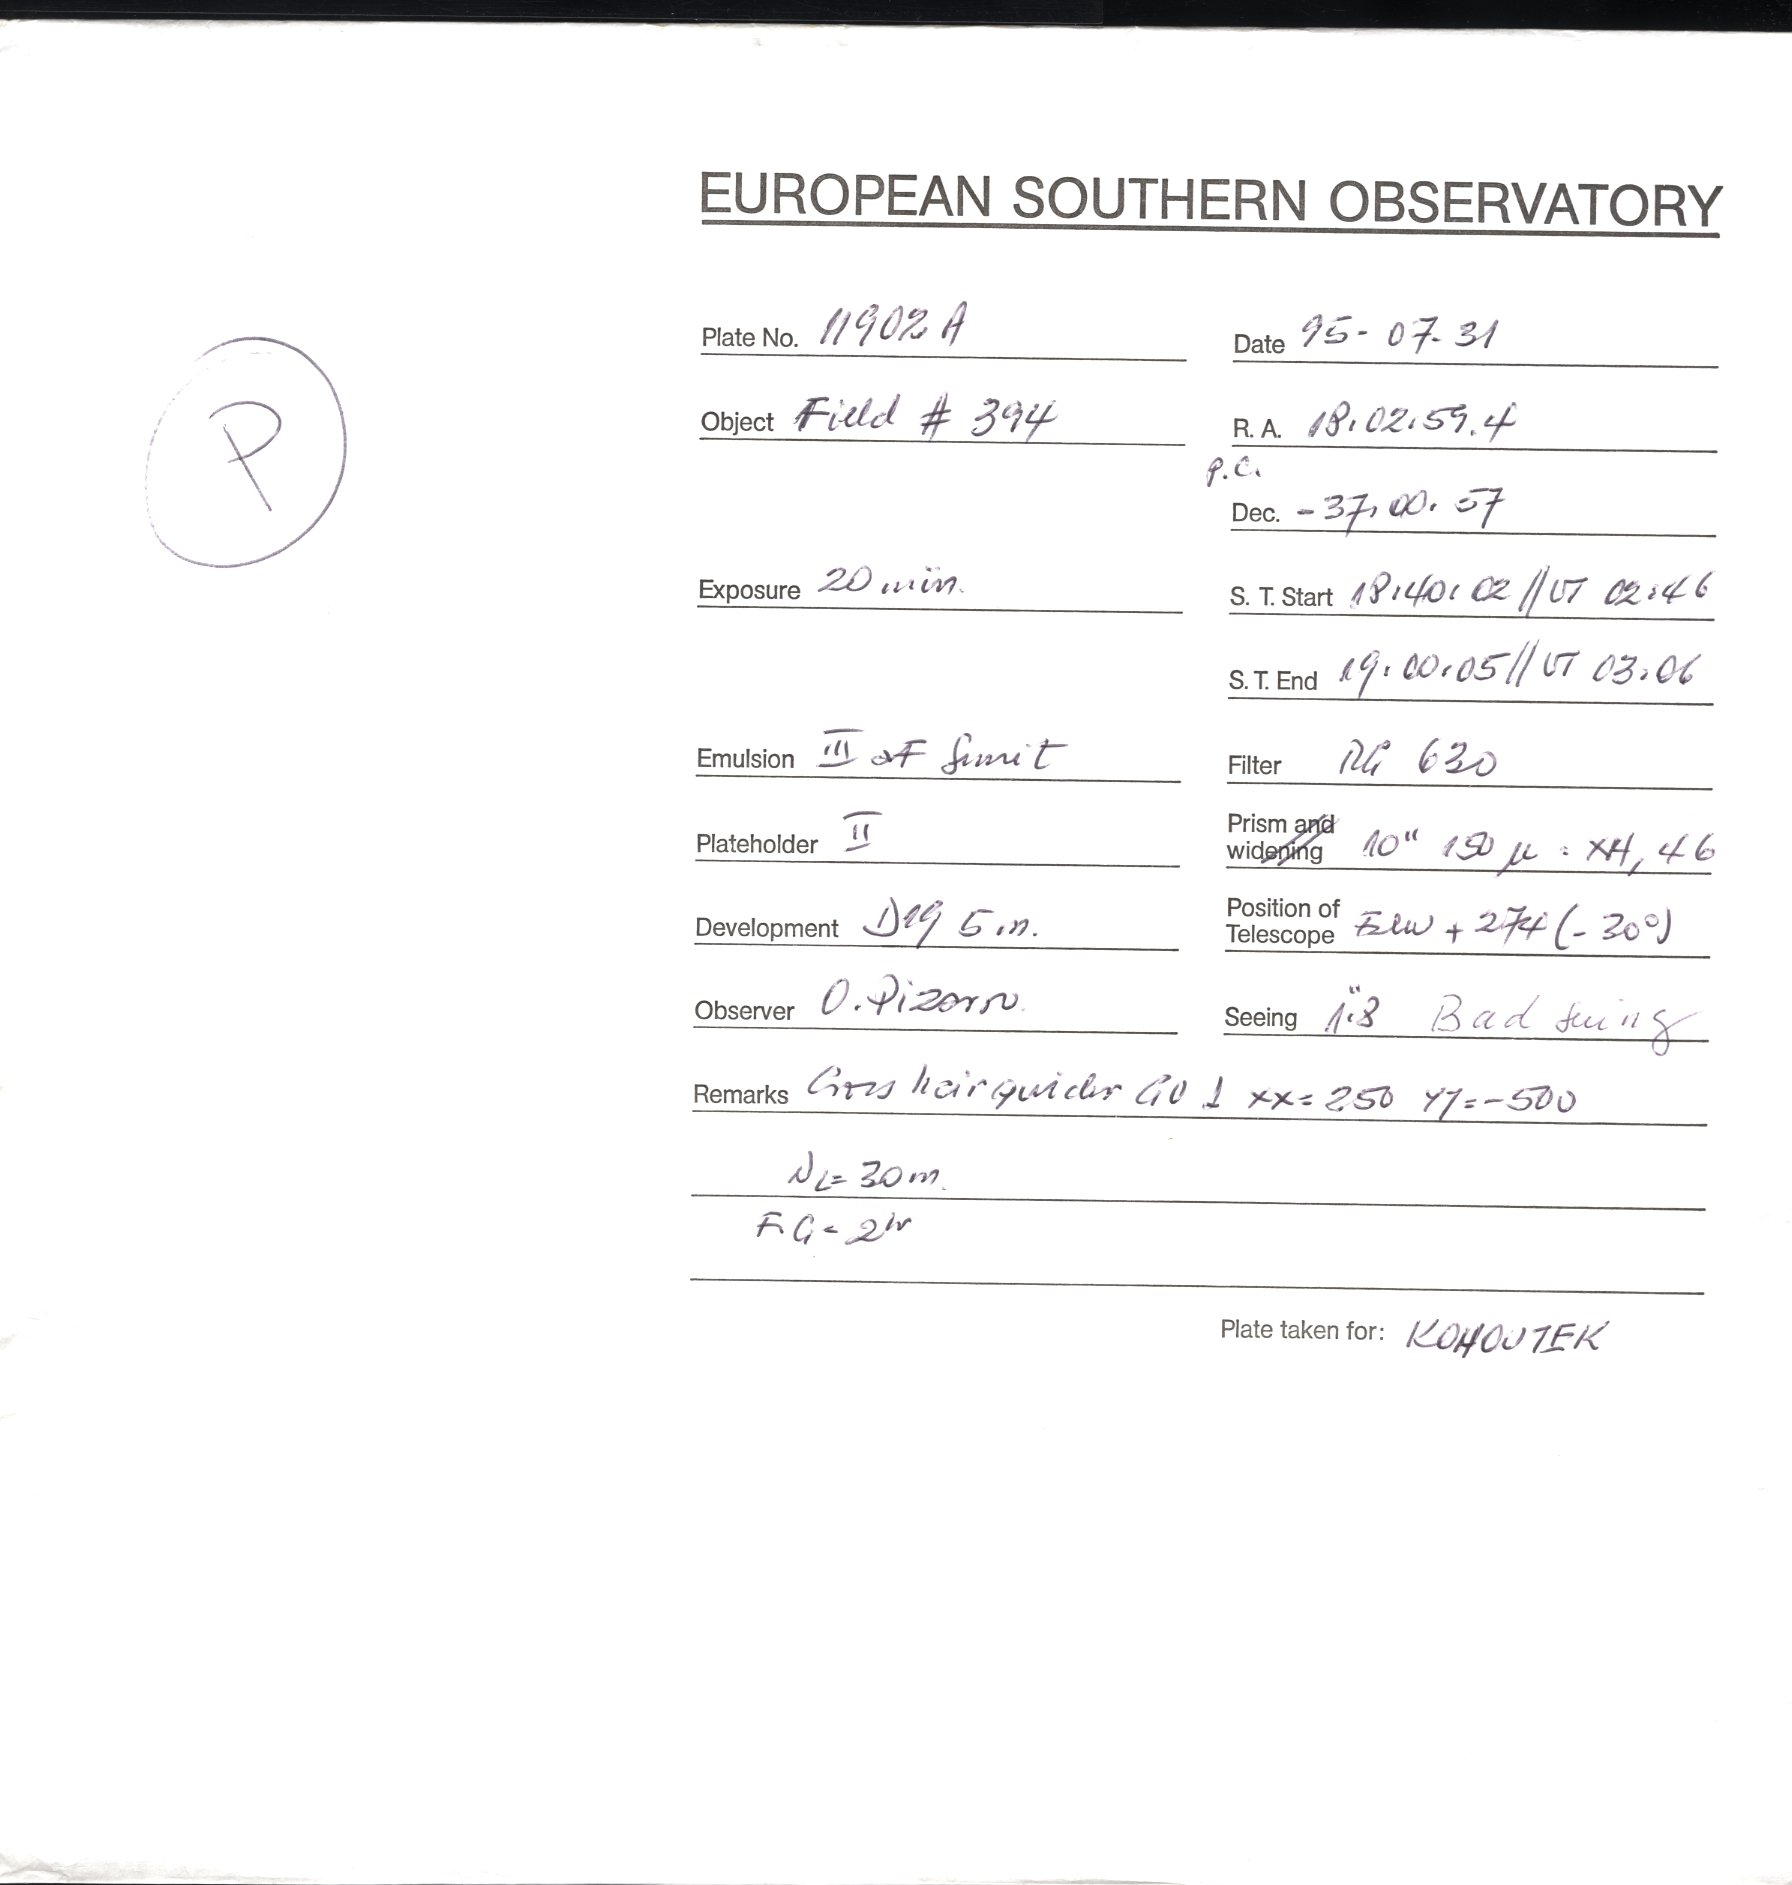 EUROPEAN SOUTHERN OBSERVATORY
Plate No. 11902 A
Date 95-07-31
P
Object Field # 394
R. A. 18.02.59.4
P.C.
Dec. -37.00.57
Exposure 20 min.
S. T. Start 18.40.02 // UT 02:46
S. T. End 19.00.05 // UT 03.06
Emulsion III aF limit
Filter RG 630
Plateholder II
Prism and widening 10" 150 µ = 4,46
Development D19 5 m.
Position of Telescope + 274 (-30°)
Observer O. Pizarro.
Seeing 1".8 Bad seing
Remarks Cross hair guider GO 1 xx = 250 yy = -500
NL = 30 m.
F.G = 2 hr
Plate taken for: KOHOUTEK